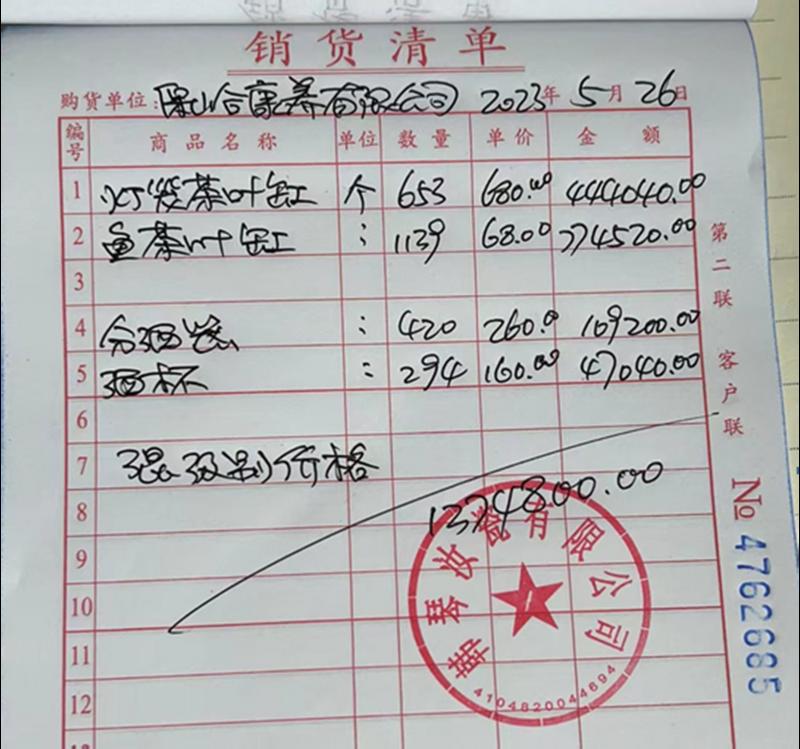 销货清单
购货单位: 保山合康养有限公司 2023年 5月 26日
编号 商品名称 单位 数量 单价 金额
1 茶叶缸 个 653 680.00 444040.00
2 鱼茶叶缸 : 1139 68.00 774520.00
3
4 分酒 : 420 260.0 109200.00
5 酒杯 : 294 160.00 47040.00
6
7 混级别价格
8 1374800.00
9
10
11
12
第二联 客户联
No 4762685
韩琴汝瓷有限公司
4104820044694